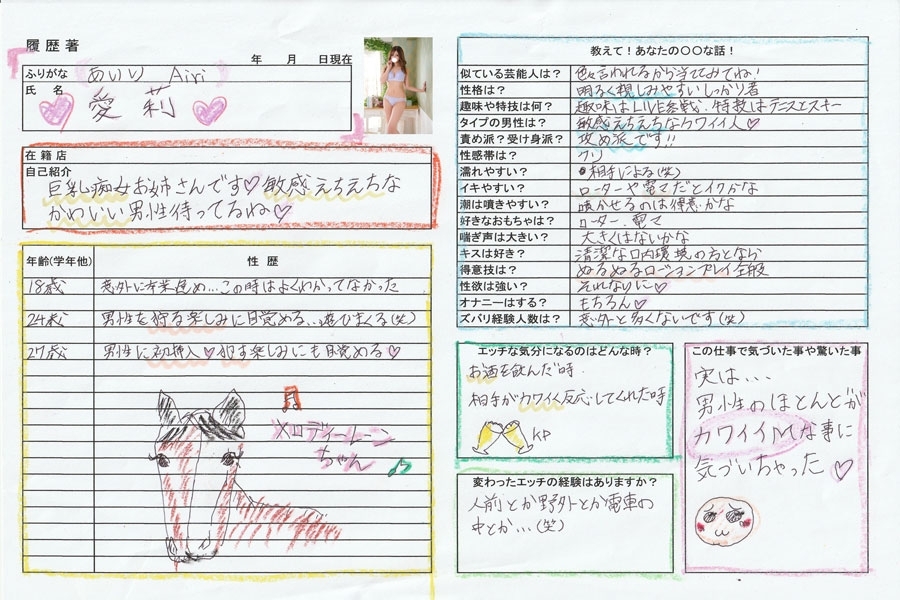 履歴著
年 月 日現在
ふりがな あいり Airi
氏 名 愛莉
在籍店
自己紹介
巨乳痴女お姉さんです♡敏感えちえちな
かわいい男性待ってるね♡
年齢(学年他) 性 歴
18歳 意外に卒業遅め…この時はよくわかってなかった
24歳 男性を狩る楽しみに目覚める、遊びまくる(笑)
27歳 男性に初挿入♡犯す楽しみにも目覚める♡
メロディーレーン
ちゃん
教えて!あなたの〇〇な話!
似ている芸能人は? 色々言われるから当ててみてね!
性格は? 明るく親しみやすいしっかり者
趣味や特技は何? 趣味はLIVE参戦、特技はテニスとスキー
タイプの男性は? 敏感えちえちなカワイイ人♡
責め派?受け身派? 攻め派です!!
性感帯は? クリ
濡れやすい? 相手による(笑)
イキやすい? ローターや電マだとイクかな
潮は噴きやすい? 噴かせるのは得意かな
好きなおもちゃは? ローター、電マ
喘ぎ声は大きい? 大きくはないかな
キスは好き? 清潔な口内環境の方となら
得意技は? ぬるぬるローションプレイ全般
性欲は強い? それなりに♡
オナニーはする? もちろん♡
ズバリ経験人数は? 意外と多くないです(笑)
エッチな気分になるのはどんな時?
お酒を飲んだ時、
相手がカワイく反応してくれた時
KP
変わったエッチの経験はありますか?
人前とか野外とか電車の
中とか…(笑)
この仕事で気づいた事や驚いた事
実は…
男性のほとんどが
カワイイMな事に
気づいちゃった♡